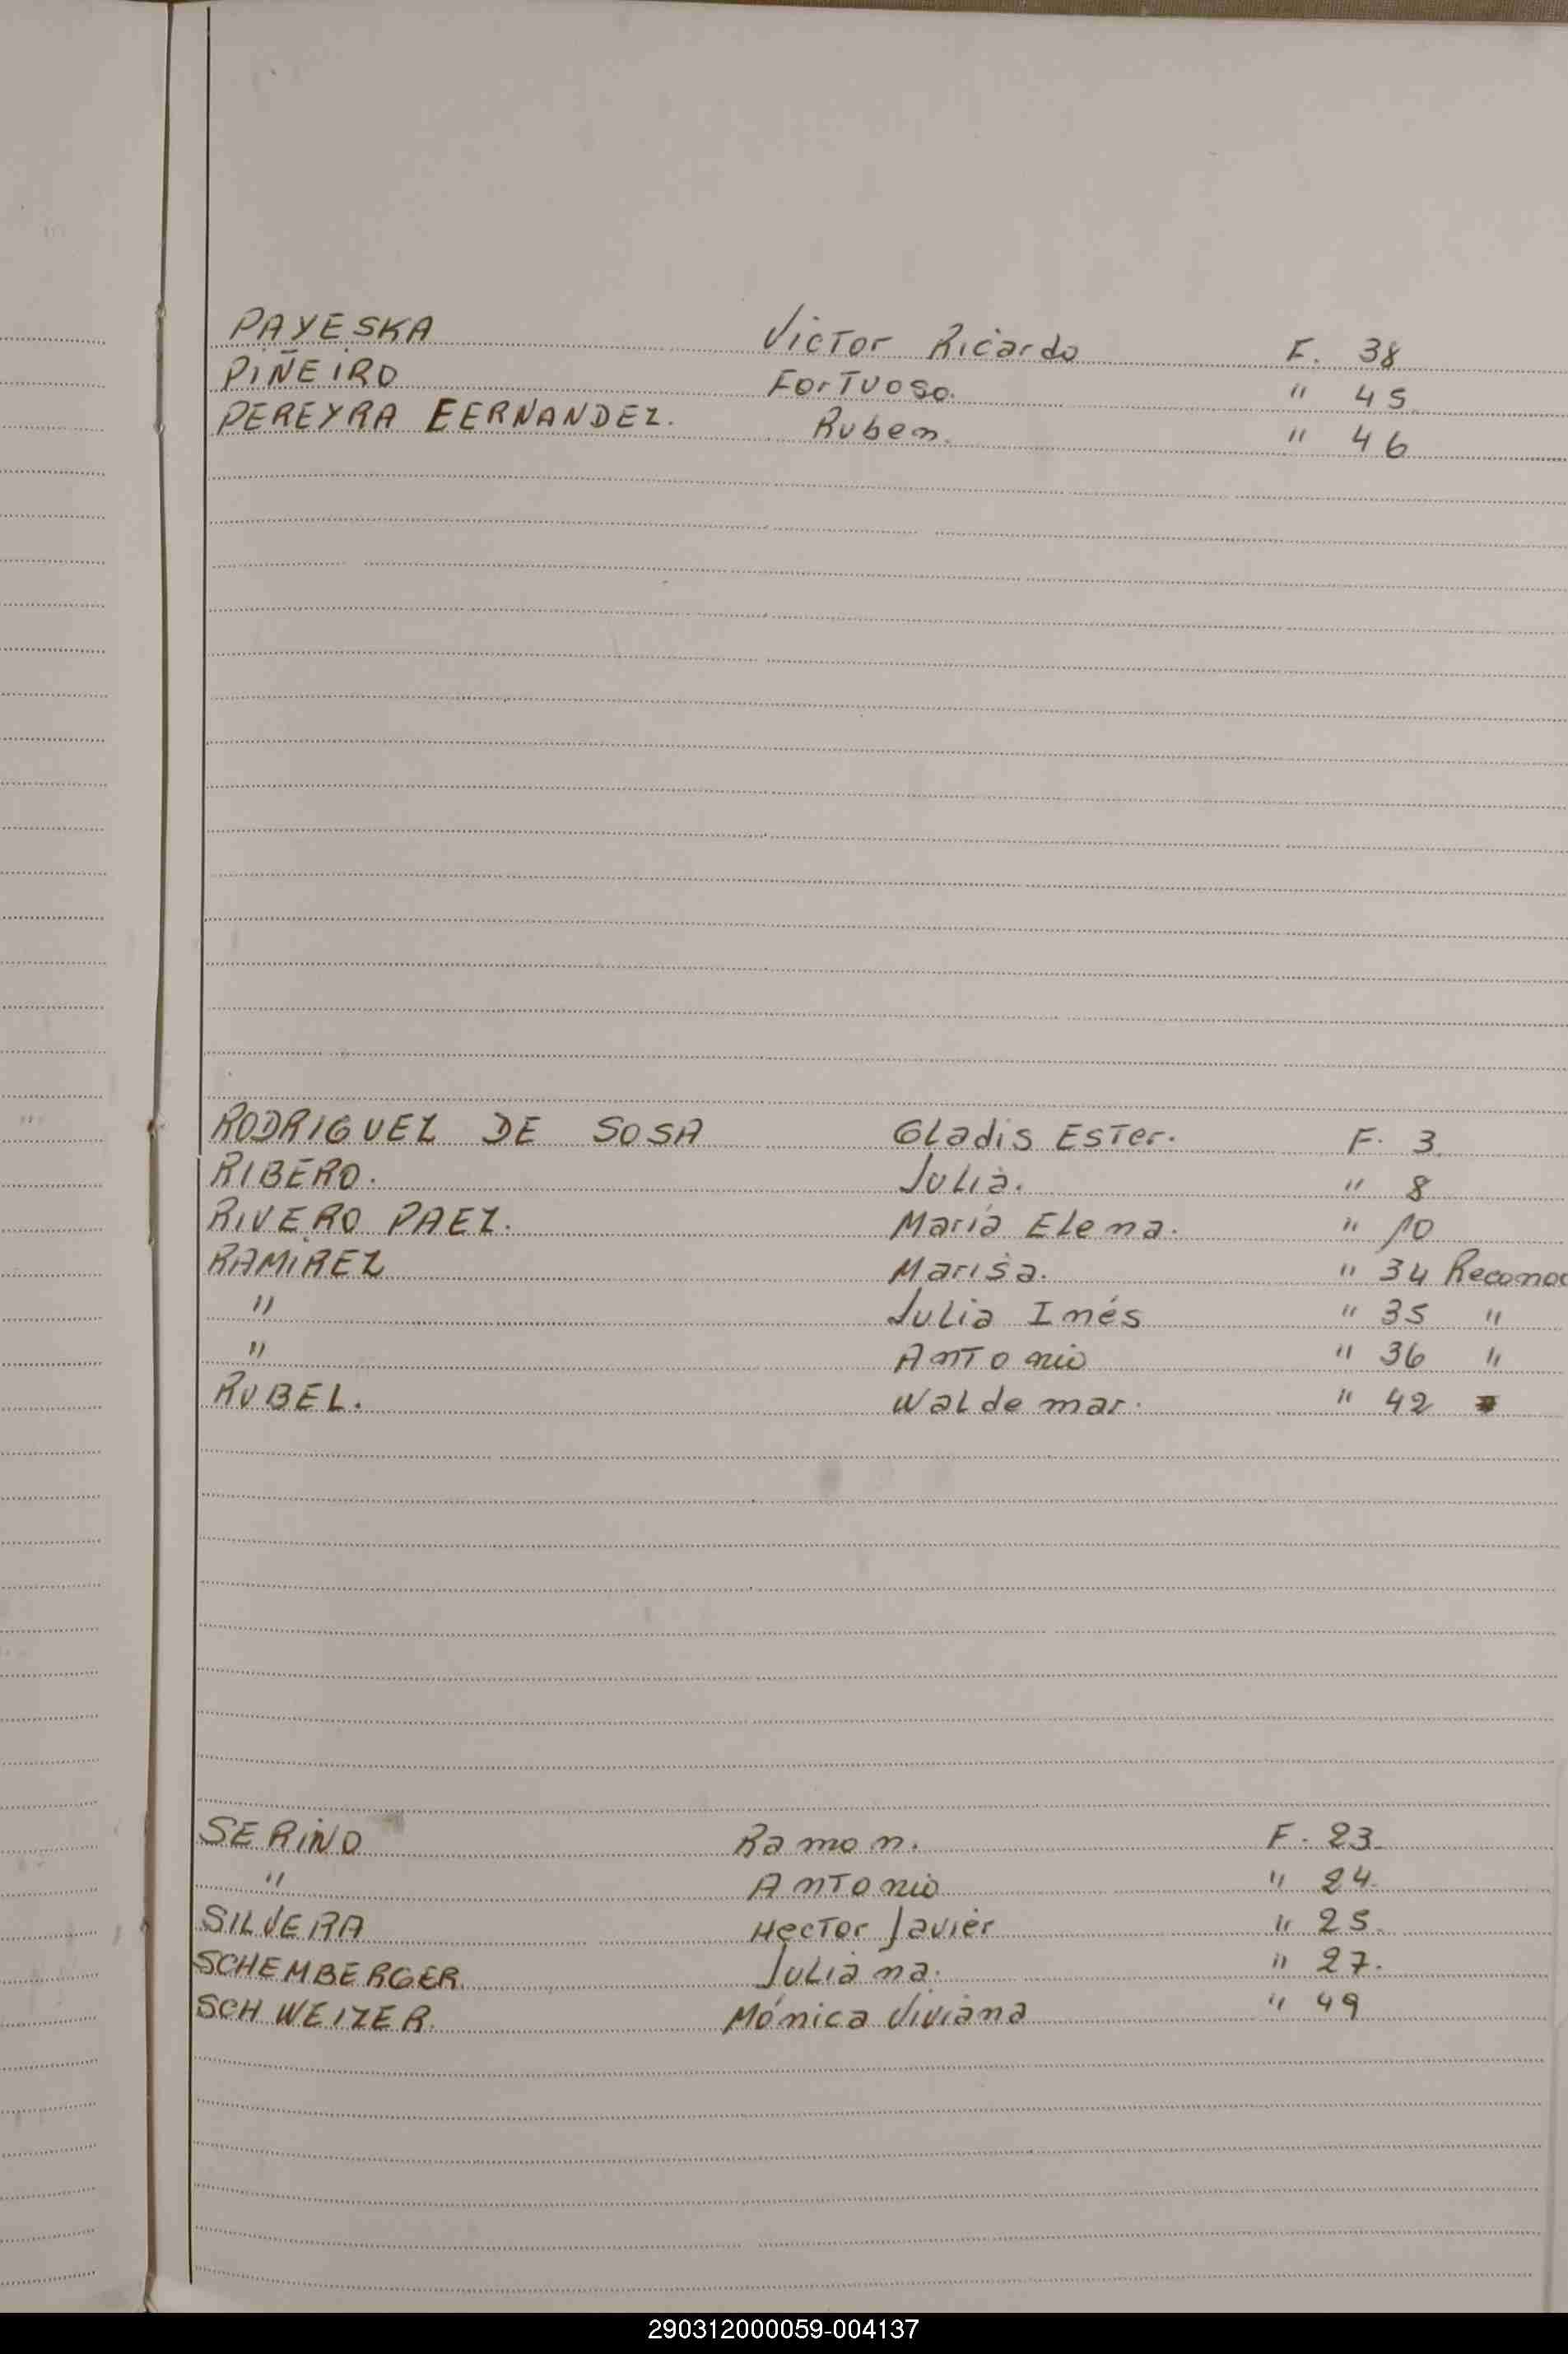 PAYESKA Victor Ricardo F. 38
PIÑEIRO ForTuoso. " 45
PEREYRA EERNANDEZ. Ruben. " 46
RODRIGUEZ DE SOSA Gladis Ester. F. 3
RIBERO. Julia. " 8
RIVERO PAEZ. María Elena. " 10
RAMIREZ Marisa. " 34 Reconoc
" Julia Inés " 35 "
" Antonio " 36 "
RUBEL. Waldemar. " 42
SERINO Ramon. F. 23
" Antonio " 24
SILVERA Hector Javier " 25.
SCHEMBERGER. Juliana. " 27.
SCHWEIZER. Mónica Viviana " 49
290312000059-004137